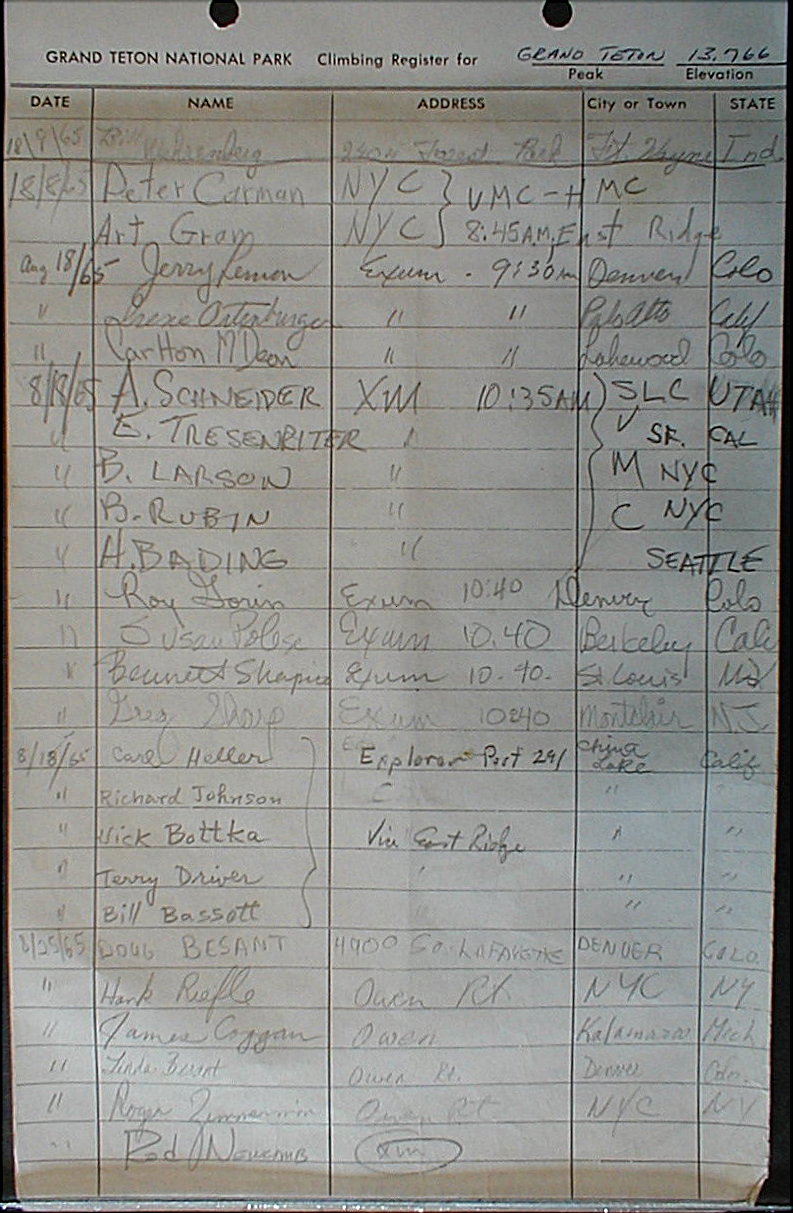 GRAND TETON NATIONAL PARK Climbing Register for GRAND TETON 13,766
Peak Elevation
DATE NAME ADDRESS City or Town STATE
18/9/65 Forest Park Ft. Wayne Ind.
18/8/65 Peter Carman NYC } VMC-HMC
Art Gram NYC } 8:45AM, East Ridge
Aug 18/65 Jerry Lemon Exum - 9:30am Denver Colo
" Irene Ortenburger " " Palo Alto Calif
" Carlton McDean " " Lakewood Colo
8/18/65 A. SCHNEIDER XM 10:35AM } SLC UTAH
" E. TRESENRITER " V SF. CAL
" B. LARSON " M NYC
" B. RUBIN " C NYC
" H. BADING " SEATTLE
" Roy Gorin Exum 10:40 Denver Colo
" Susan Polese Exum 10.40 Berkeley Cali
" Bennett Shapiro Exum 10-40- St. Louis Mo
" Greg Sharp Exum 10:40 Montclair N.J.
8/18/65 Carl Heller Explorer Post 291 China Lake Calif
" Richard Johnson " "
" Nick Bottka Via East Ridge " "
" Terry Driver " " "
" Bill Bassott " "
8/25/65 DOUG BESANT 4900 So. LAFAYETTE DENVER COLO.
" Hank Riefle Owen Rt NYC NY
" James Coggan Owen Kalamazoo Mich
" Linda Besant Owen Rt. Denver Colo.
" Roger Zimmerman Owen Rt NYC NY
" Rod Newcomb XM